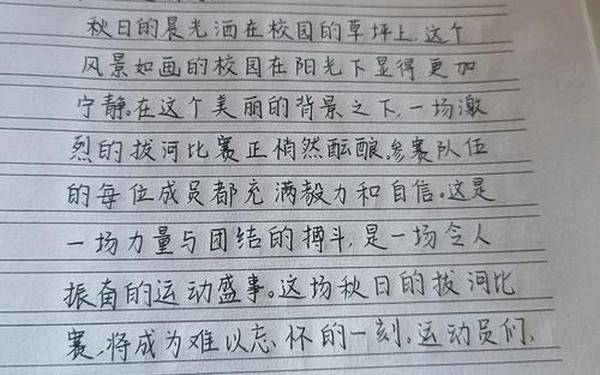 秋日的晨光洒在校园的草坪上,这个
风景如画的校园在阳光下显得更加
宁静。在这个美丽的背景之下,一场激
烈的拔河比赛正悄然酝酿。参赛队伍
的每位成员都充满毅力和自信。这是
一场力量与团结的搏斗,是一场令人
振奋的运动盛事。这场秋日的拔河比
赛,将成为难以忘怀的一刻。运动员们,